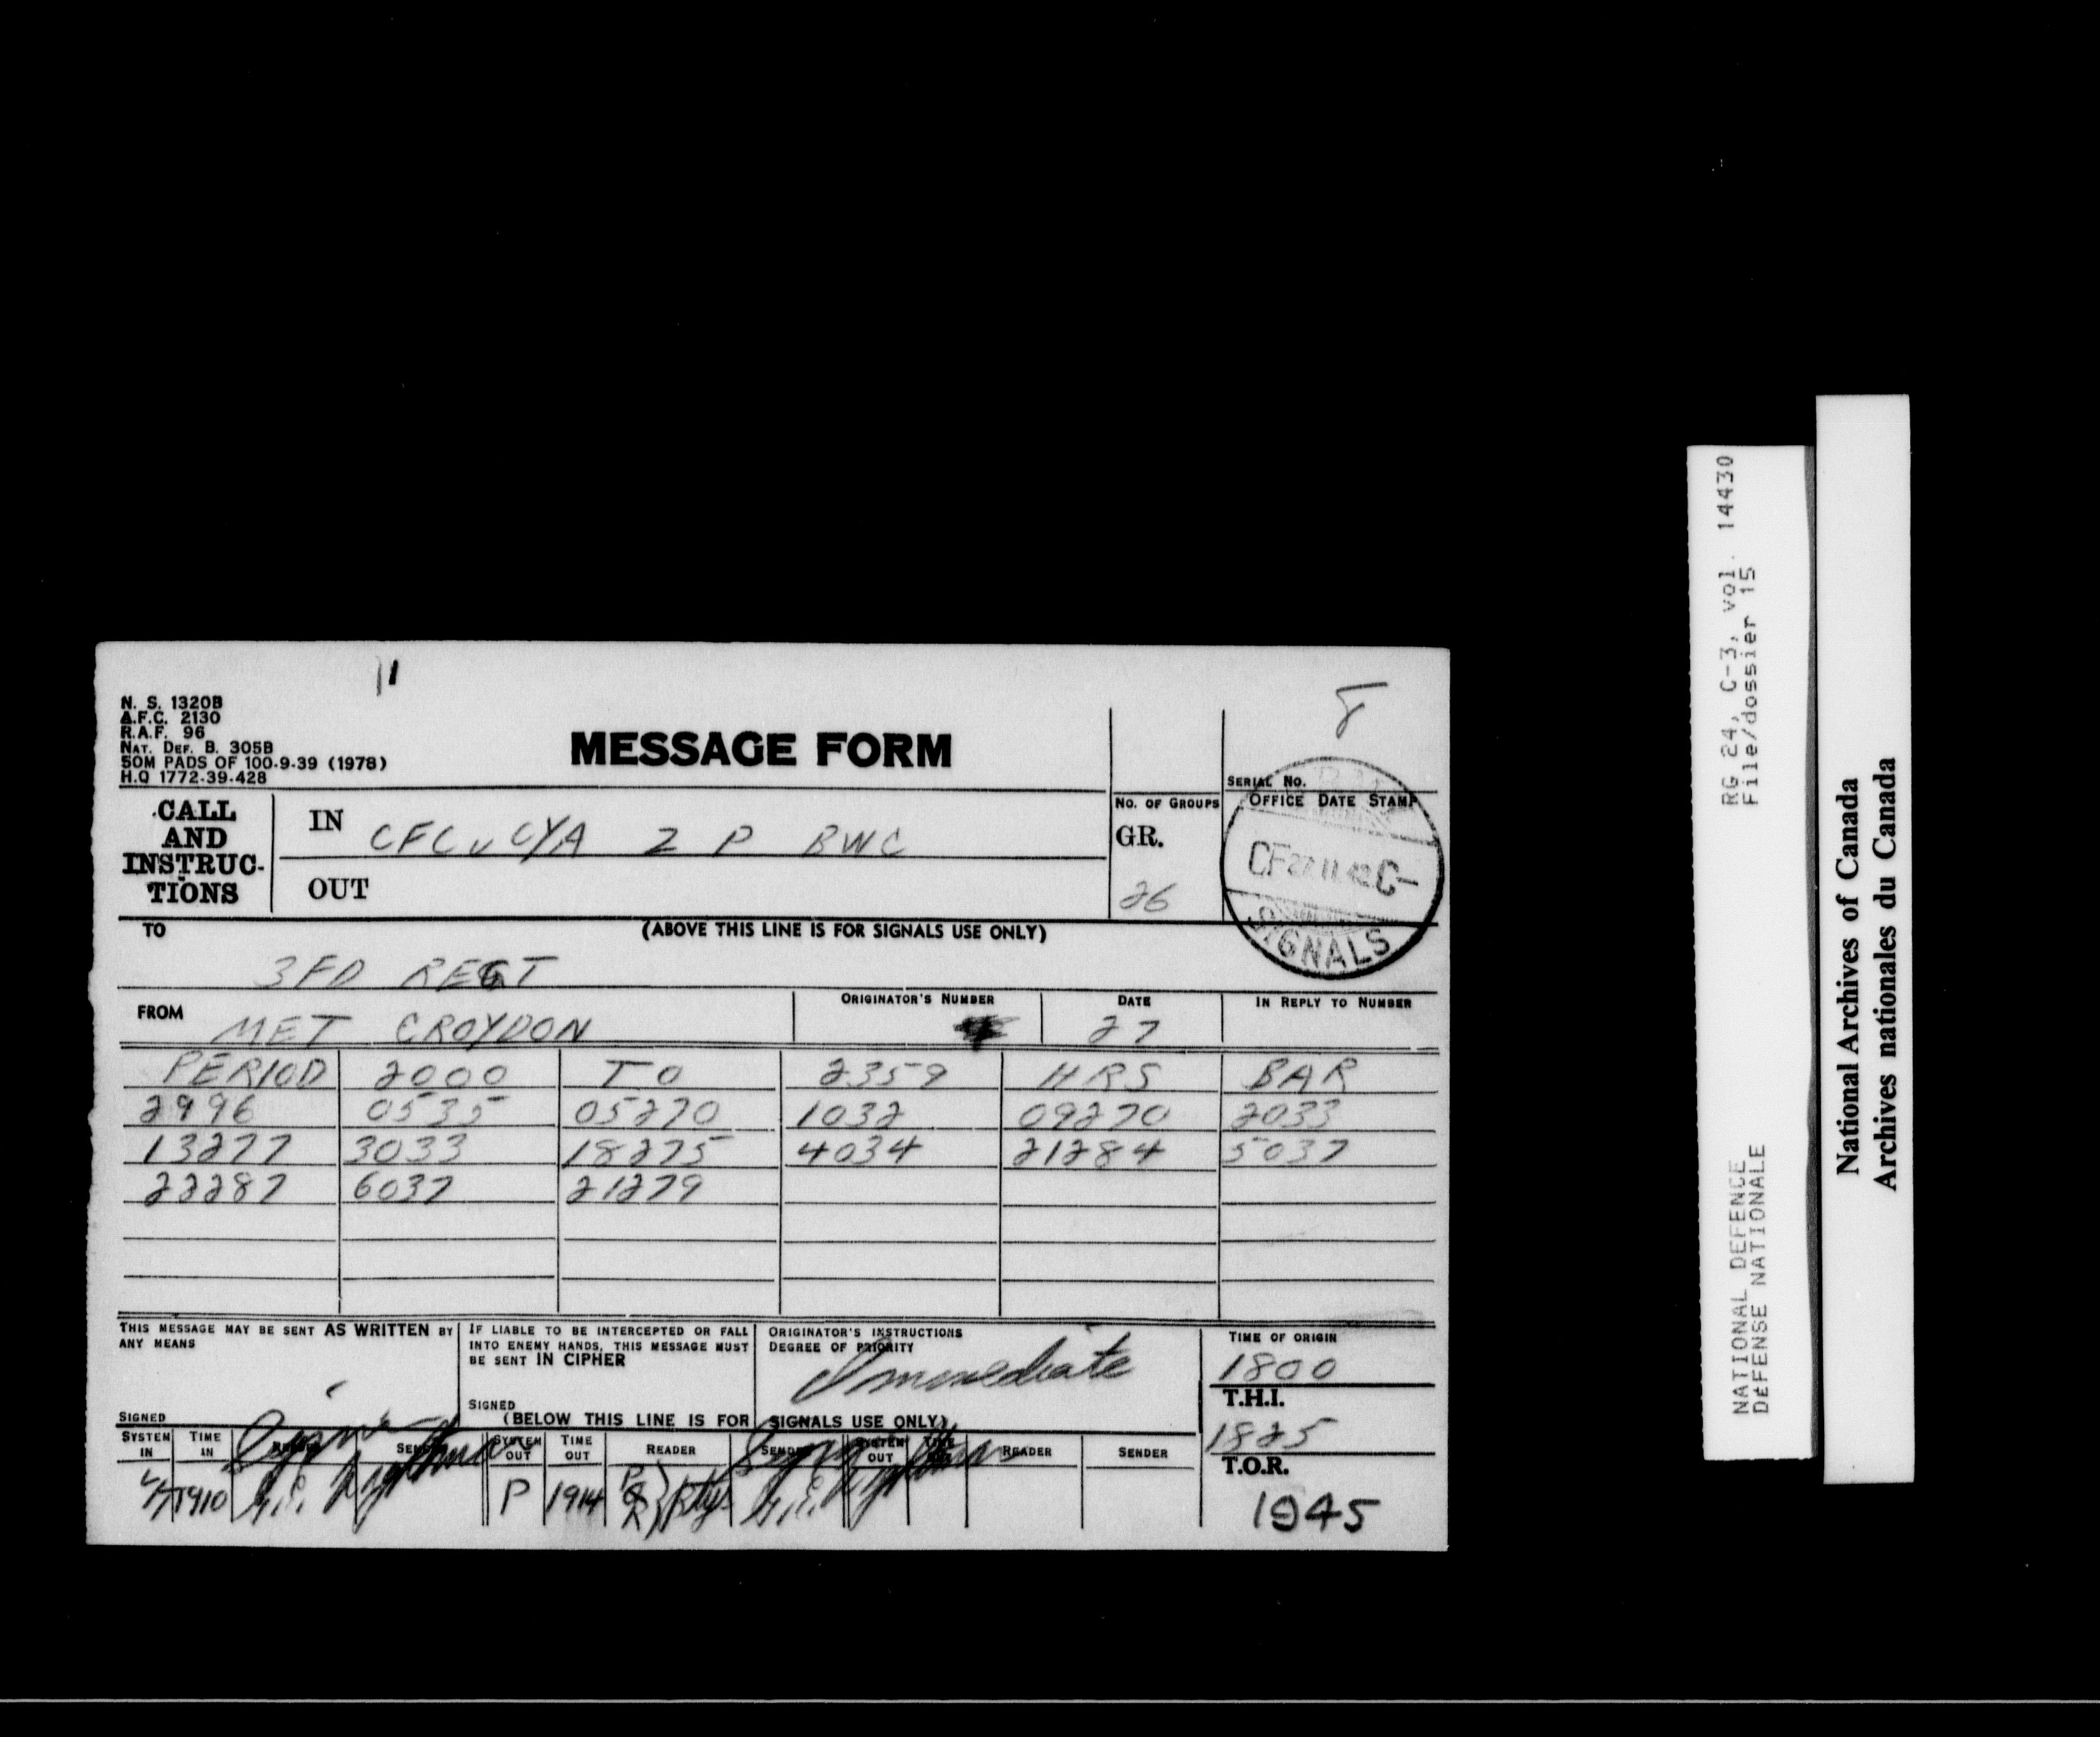 N. S. 1320B
A.F.C. 2130
R.A.F. 96
NAT. DEF. B. 305B
50M PADS OF 100-9-39 (1978)
H.Q 1772-39-428
MESSAGE FORM
8
SERIAL NO.
CALL AND INSTRUC-TIONS
IN CFC v CYA 2 P BWC
OUT
NO. OF GROUPS
GR.
26
OFFICE DATE STAMP
CF 27 11 42 C-
SIGNALS
TO (ABOVE THIS LINE IS FOR SIGNALS USE ONLY)
3FD REGT
FROM MET CROYDON ORIGINATOR'S NUMBER DATE 27 IN REPLY TO NUMBER
PERIOD 2000 TO 2359 HRS BAR
2996 0535 05270 1032 09270 2033
13277 3033 18275 4034 21284 5037
22287 6037 21279
THIS MESSAGE MAY BE SENT AS WRITTEN BY ANY MEANS
SIGNED
IF LIABLE TO BE INTERCEPTED OR FALL
INTO ENEMY HANDS, THIS MESSAGE MUST
BE SENT IN CIPHER
SIGNED
ORIGINATOR'S INSTRUCTIONS
DEGREE OF PRIORITY
Immediate
TIME OF ORIGIN
1800
T.H.I.
1825
T.O.R.
1945
(BELOW THIS LINE IS FOR SIGNALS USE ONLY)
SYSTEM IN TIME IN READER SENDER SYSTEM OUT TIME OUT READER SENDER SYSTEM OUT TIME OUT READER SENDER
1910 P 1914
RG 24, C-3, vol. 14430
File/dossier 15
NATIONAL DEFENCE
DÉFENSE NATIONALE
National Archives of Canada
Archives nationales du Canada